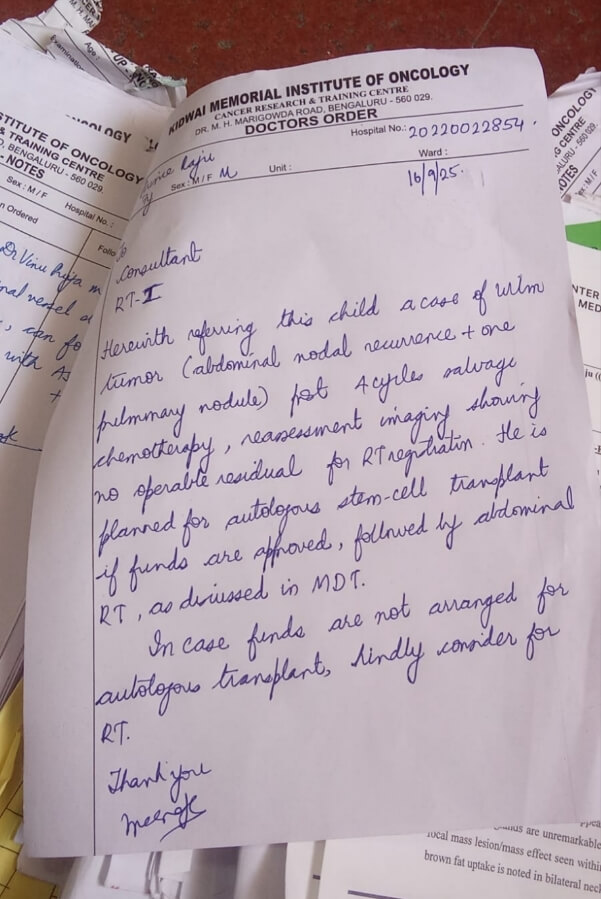 KIDWAI MEMORIAL INSTITUTE OF ONCOLOGY
CANCER RESEARCH & TRAINING CENTRE
DR. M. H. MARIGOWDA ROAD, BENGALURU - 560 029.
DOCTORS ORDER
Hospital No.: 20220022854.
Raju
Sex: M / F M Unit : Ward :
16/9/25.
Consultant
RT-I
Herewith referring this child a case of wilm
tumor (abdominal nodal recurrence + one
pulmonary nodule) post 4 cycles salvage
chemotherapy, reassessment imaging showing
no operable residual for RT registration. He is
planned for autologous stem-cell transplant
if funds are approved, followed by abdominal
RT, as discussed in MDT.
In case funds are not arranged for
autologous transplant, kindly consider for
RT.
Thank you
STITUTE OF ONCOLOGY
& TRAINING CENTRE
D, BENGALURU - 560 029.
- NOTES
Sex : M / F Hospital No. :
n Ordered
Age :
are unremarkable
focal mass lesion/mass effect seen within
brown fat uptake is noted in bilateral neck